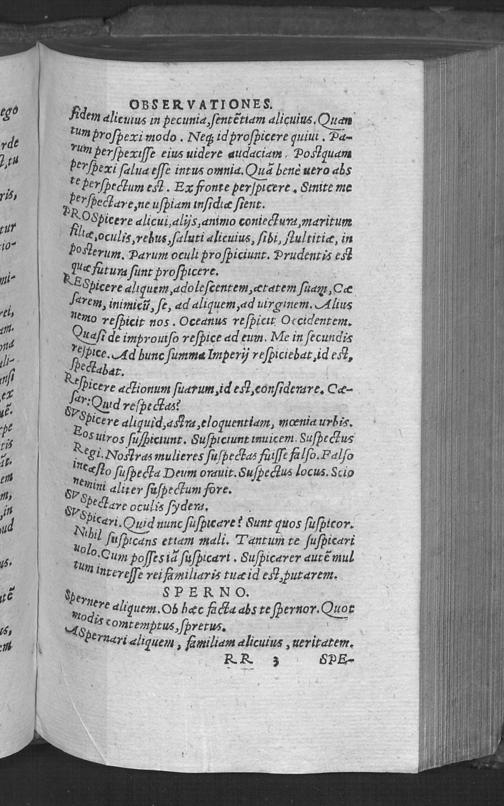 OBSERVATIONES.
fidem alicuius in pecunia, sentẽtiam alicuius. Quan
tum prospexi modo. Neq; id prospicere quiui. Pa-
rum perspexisse eius uidere audaciam. Postquam
perspexi salua esse intus omnia. Quã benè uero abs
te perspectum est. Ex fronte perspicere. Sinite me
perspectare, ne uspiam insidiæ sient.
PROSpicere alicui, alijs, animo coniectura, maritum
filiæ, oculis, rebus, saluti alicuius, sibi, stultitiæ, in
posterum. Parum oculi prospiciunt. Prudentis est
quæ futura sunt prospicere.
RESpicere aliquem, adolescentem, ætatem suam, Cæ
sarem, inimicũ, se, ad aliquem, ad uirginem. Alius
nemo respicit nos. Oceanus respicit Occidentem.
Quasi de improuiso respice ad eum. Me in secundis
respice. Ad hunc summa Imperij respiciebat, id est,
spectabat.
Respicere actionum suarum, id est, considerare. Cæ-
sar: Quid respectas?
SVSpicere aliquid, astra, eloquentiam, mœnia urbis.
Eos uiros suspiciunt. Suspiciunt inuicem. Suspectus
Regi. Nostras mulieres suspectas fuisse falso. Falso
incæsto suspecta Deum orauit. Suspectus locus. Scio
nemini aliter suspectum fore.
SVSpectare oculis sydera.
SVSpicari. Quid nunc suspicare? Sunt quos suspicor.
Nihil suspicans etiam mali. Tantum te suspicari
uolo. Cum posses iã suspicari. Suspicarer autẽ mul
tum interesse rei familiaris tuæ id est, putarem.
SPERNO.
Spernere aliquem. Ob hæc facta abs te spernor. Quot
modis comtemptus, spretus.
ASpernari aliquem, familiam alicuius, ueritatem.
RR 3 SPE-